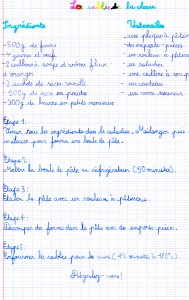 Les sablés de la classe
Ingrédients
Ustensiles
- 500g de farine
- 4 jaunes d'oeuf
- 2 cuillères à soupe d'arôme fleur
d'oranger
- 2 sachets de sucre vanillé
- 200g de sucre en poudre
- 300g de beurre en petits morceaux
- une plaque à pâtisserie
- des emporte-pièces
- un rouleau à pâtisserie
- un saladier
- une cuillère à soupe
- un couteau
- un verre mesureur
Étape 1 :
Verser tous les ingrédients dans le saladier. Mélanger puis
malaxer pour former une boule de pâte.
Étape 2 :
Mettre la boule de pâte au réfrigérateur (30 minutes).
Étape 3 :
Étaler la pâte avec un rouleau à pâtisserie.
Étape 4 :
Découper des formes dans la pâte avec des emporte-pièces.
Étape 5 :
Enfourner les sablés pour la cuisson (12 minutes à 180°).
Régalez-vous !